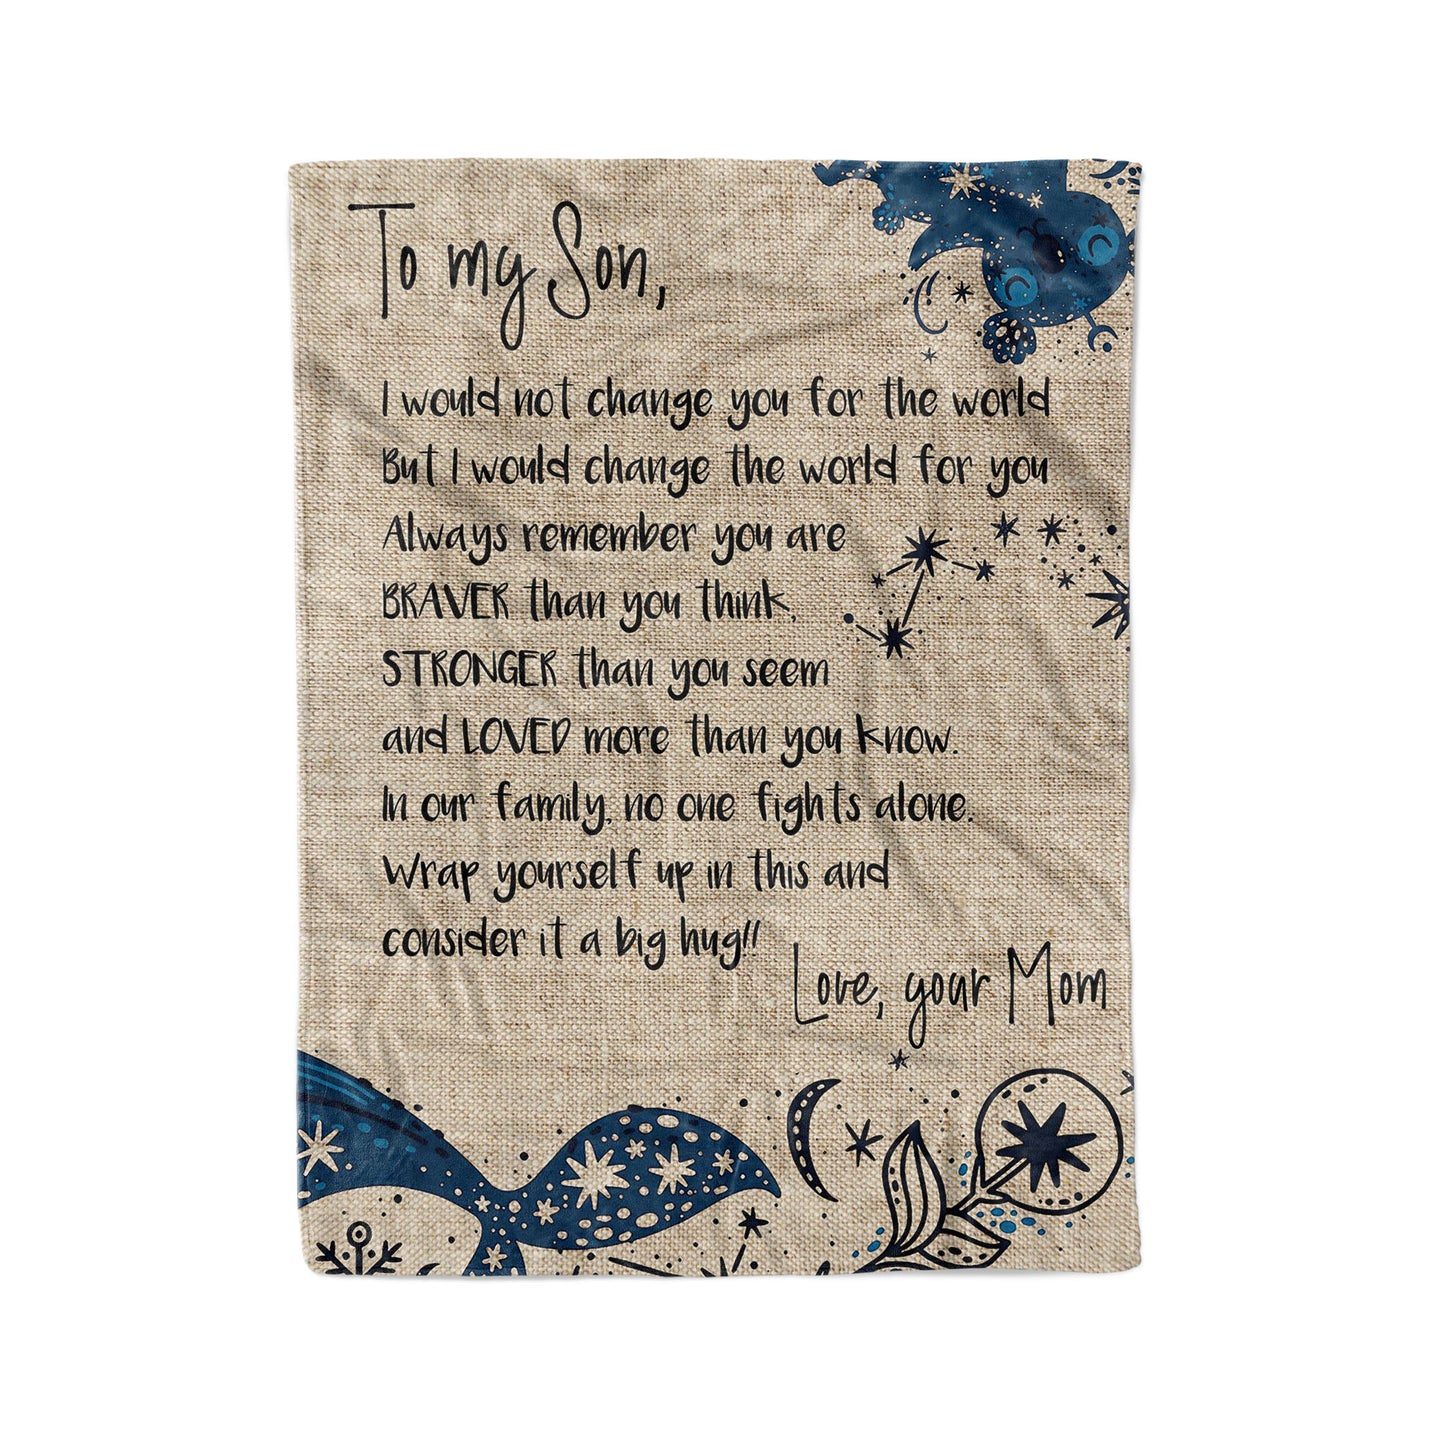 To my Son,
I would not change you for the world
But I would change the world for you
Always remember you are
BRAVER than you think,
STRONGER than you seem
and LOVED more than you know.
In our family, no one fights alone.
Wrap yourself up in this and
consider it a big hug!!
Love, your Mom